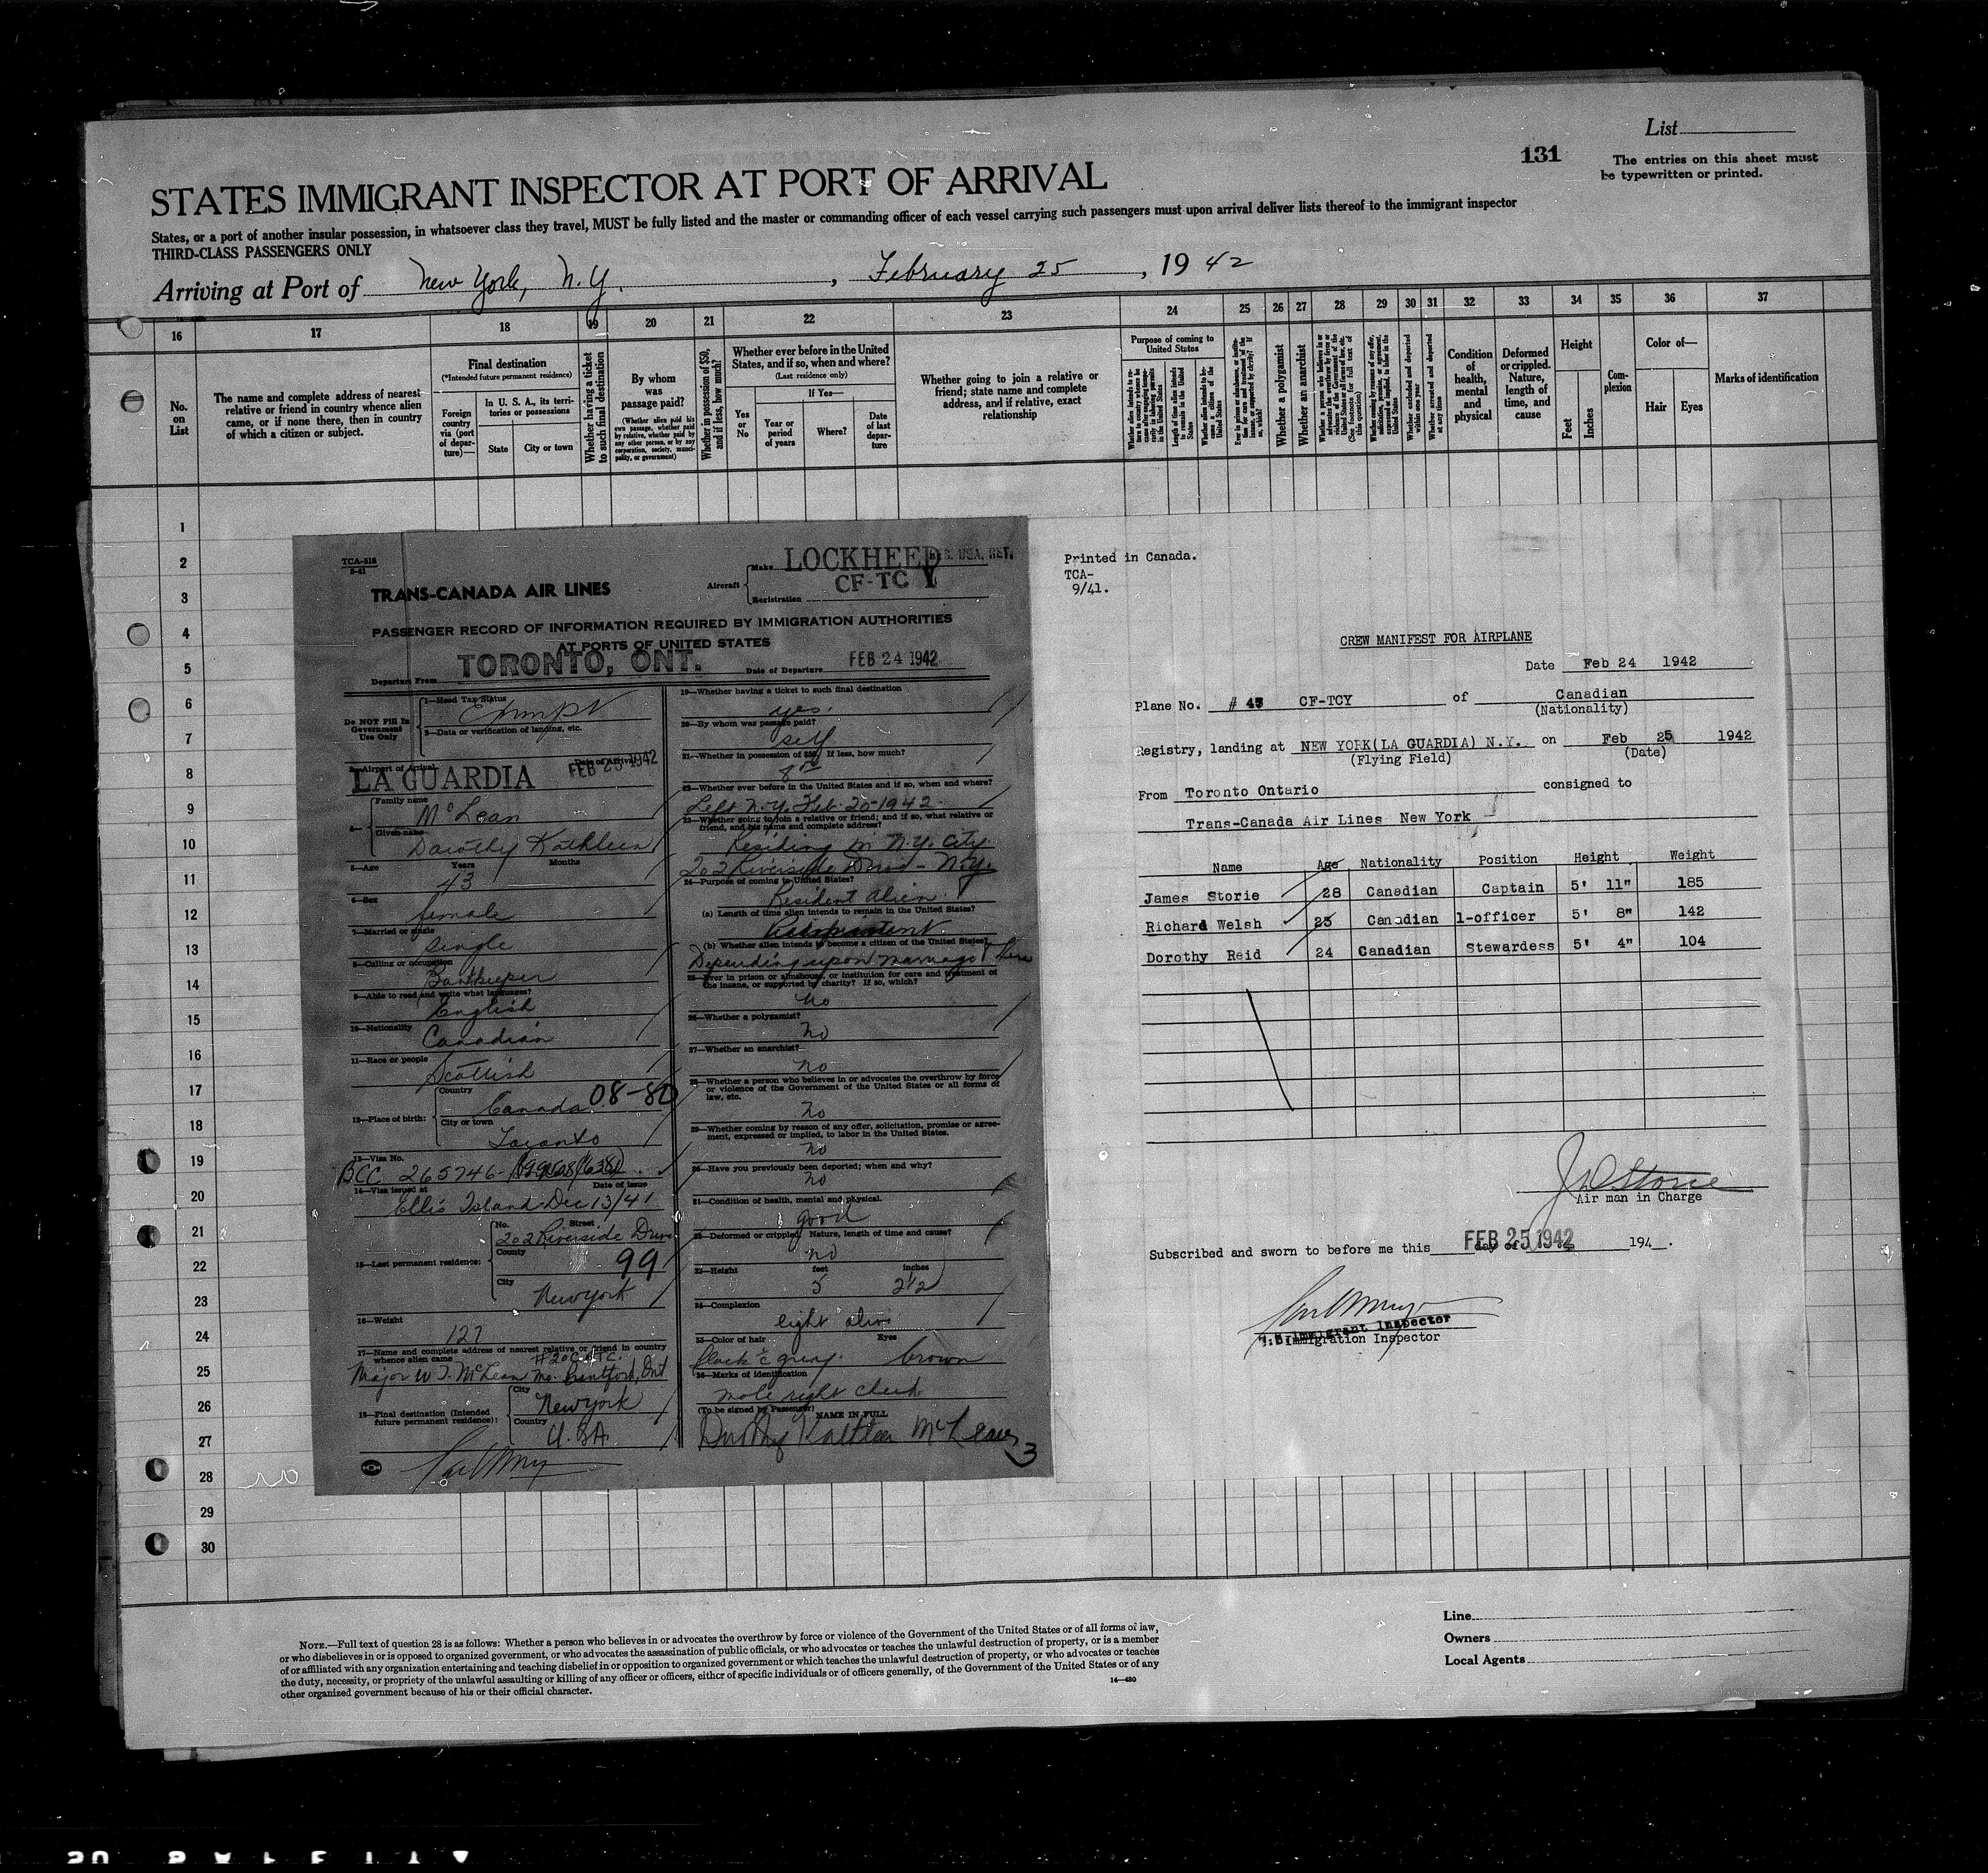 List
131
The entries on this sheet must
be typewritten or printed.
STATES IMMIGRANT INSPECTOR AT PORT OF ARRIVAL
States, or a port of another insular possession, in whatsoever class they travel, MUST be fully listed and the master or commanding officer of each vessel carrying such passengers must upon arrival deliver lists thereof to the immigrant inspector
THIRD-CLASS PASSENGERS ONLY
Arriving at Port of New York, N.Y. , February 25 , 19 42
16 17 18 19 20 21 22 23 24 25 26 27 28 29 30 31 32 33 34 35 36 37
No.
on
List
The name and complete address of nearest
relative or friend in country whence alien
came, or if none there, then in country
of which a citizen or subject.
Final destination
(*Intended future permanent residence)
Foreign
country
via (port
of depar-
ture)—
In U. S. A., its terri-
tories or possessions
State
City or town
Whether having a ticket
to such final destination
By whom
was
passage paid?
(Whether alien paid his
own passage, whether paid
by relative, whether paid by
any other person, or by any
corporation, society, munic-
ipality, or government)
Whether in possession of $50,
and if less, how much?
Whether ever before in the United
States, and if so, when and where?
(Last residence only)
Yes
or
No
If Yes—
Year or
period
of years
Where?
Date
of last
depar-
ture
Whether going to join a relative or
friend; state name and complete
address, and if relative, exact
relationship
Purpose of coming to
United States
Length of time alien intends
to remain in the United
States
Whether a polygamist
Whether an anarchist
Whether excluded and deported
within one year
Whether arrested and deported
at any time
Condition
of
health,
mental
and
physical
Deformed
or crippled.
Nature,
length of
time, and
cause
Height
Feet
Inches
Com-
plexion
Color of—
Hair
Eyes
Marks of identification
1
2
3
4
5
6
7
8
9
10
11
12
13
14
15
16
17
18
19
20
21
22
23
24
25
26
27
28
29
30
TCA-518
TRANS-CANADA AIR LINES
Aircraft
Make LOCKHEED
CF-TC Y
Registration
PASSENGER RECORD OF INFORMATION REQUIRED BY IMMIGRATION AUTHORITIES
AT PORTS OF UNITED STATES
Departure From TORONTO, ONT. Date of Departure FEB 24 1942
Do NOT Fill In
Government
Use Only
1—Head Tax Status
Exempt
2—Data or verification of landing, etc.
3—Airport of Arrival
LA GUARDIA
Date of Arrival
FEB 25 1942
Family name
McLean
Given name
Dorothy Kathleen
5—Age Years Months
43
6—Sex
female
7—Married or single
single
8—Calling or occupation
Bookkeeper
9—Able to read and write what languages?
English
10—Nationality
Canadian
11—Race or people
Scottish
12—Place of birth:
Country
Canada 08-80
City or town
Toronto
13—Visa No.
BCC 265746-
14—Visa issued at Date of Issue
Ellis Island-Dec 13/41
15—Last permanent residence:
No. Street
202 Riverside Drive
County
99
City
New York
16—Weight
127
17—Name and complete address of nearest relative or friend in country
whence alien came
Major W. J. McLean Brantford, Ont
18—Final destination (Intended
future permanent residence):
City
New York
Country
U.S.A.
19—Whether having a ticket to such final destination
yes.
20—By whom was passage paid?
self
21—Whether in possession of $50. If less, how much?
8
22—Whether ever before in the United States and if so, when and where?
Left N.Y. Feb-20-1942
23—Whether going to join a relative or friend; and if so, what relative or
friend, and his name and complete address?
Residing in N.Y. City
202 Riverside Drive - N.Y.
24—Purpose of coming to United States?
Resident Alien
(a) Length of time alien intends to remain in the United States?
Permanent
(b) Whether alien intends to become a citizen of the United States?
Depending upon marriage
25—Ever in prison or almshouse, or institution for care and treatment of
the insane, or supported by charity? If so, which?
No
26—Whether a polygamist?
No
27—Whether an anarchist?
No
28—Whether a person who believes in or advocates the overthrow by force
or violence of the Government of the United States or all forms of
law, etc.
No
29—Whether coming by reason of any offer, solicitation, promise or agree-
ment, expressed or implied, to labor in the United States.
No
30—Have you previously been deported; when and why?
No
31—Condition of health, mental and physical.
good
32—Deformed or crippled. Nature, length of time and cause?
no
33—Height feet inches
5 2½
34—Complexion
light olive
35—Color of hair Eyes
black & grey. brown
36—Marks of identification
mole right cheek
(To be signed by Passenger) NAME IN FULL
Dorothy Kathleen McLean
3
Printed in Canada.
TCA-
9/41.
CREW MANIFEST FOR AIRPLANE
Date Feb 24 1942
Plane No. # 45 CF-TCY of Canadian
(Nationality)
Registry, landing at NEW YORK(LA GUARDIA) N.Y. on Feb 25 1942
(Flying Field) (Date)
From Toronto Ontario consigned to
Trans-Canada Air Lines New York
Name Age Nationality Position Height Weight
James Storie 28 Canadian Captain 5' 11" 185
Richard Welsh 25 Canadian 1-officer 5' 8" 142
Dorothy Reid 24 Canadian Stewardess 5' 4" 104
J D Storie
Air man in Charge
Subscribed and sworn to before me this FEB 25 1942 day of 194 .
U.S. Immigrant Inspector
Immigration Inspector
Line
Owners
Local Agents
NOTE.—Full text of question 28 is as follows: Whether a person who believes in or advocates the overthrow by force or violence of the Government of the United States or of all forms of law,
or who disbelieves in or is opposed to organized government, or who advocates the assassination of public officials, or who advocates or teaches the unlawful destruction of property, or is a member
of or affiliated with any organization entertaining and teaching disbelief in or opposition to organized government or which teaches the unlawful destruction of property, or who advocates or teaches
the duty, necessity, or propriety of the unlawful assaulting or killing of any officer or officers, either of specific individuals or of officers generally, of the Government of the United States or of any
other organized government because of his or their official character.
14—480